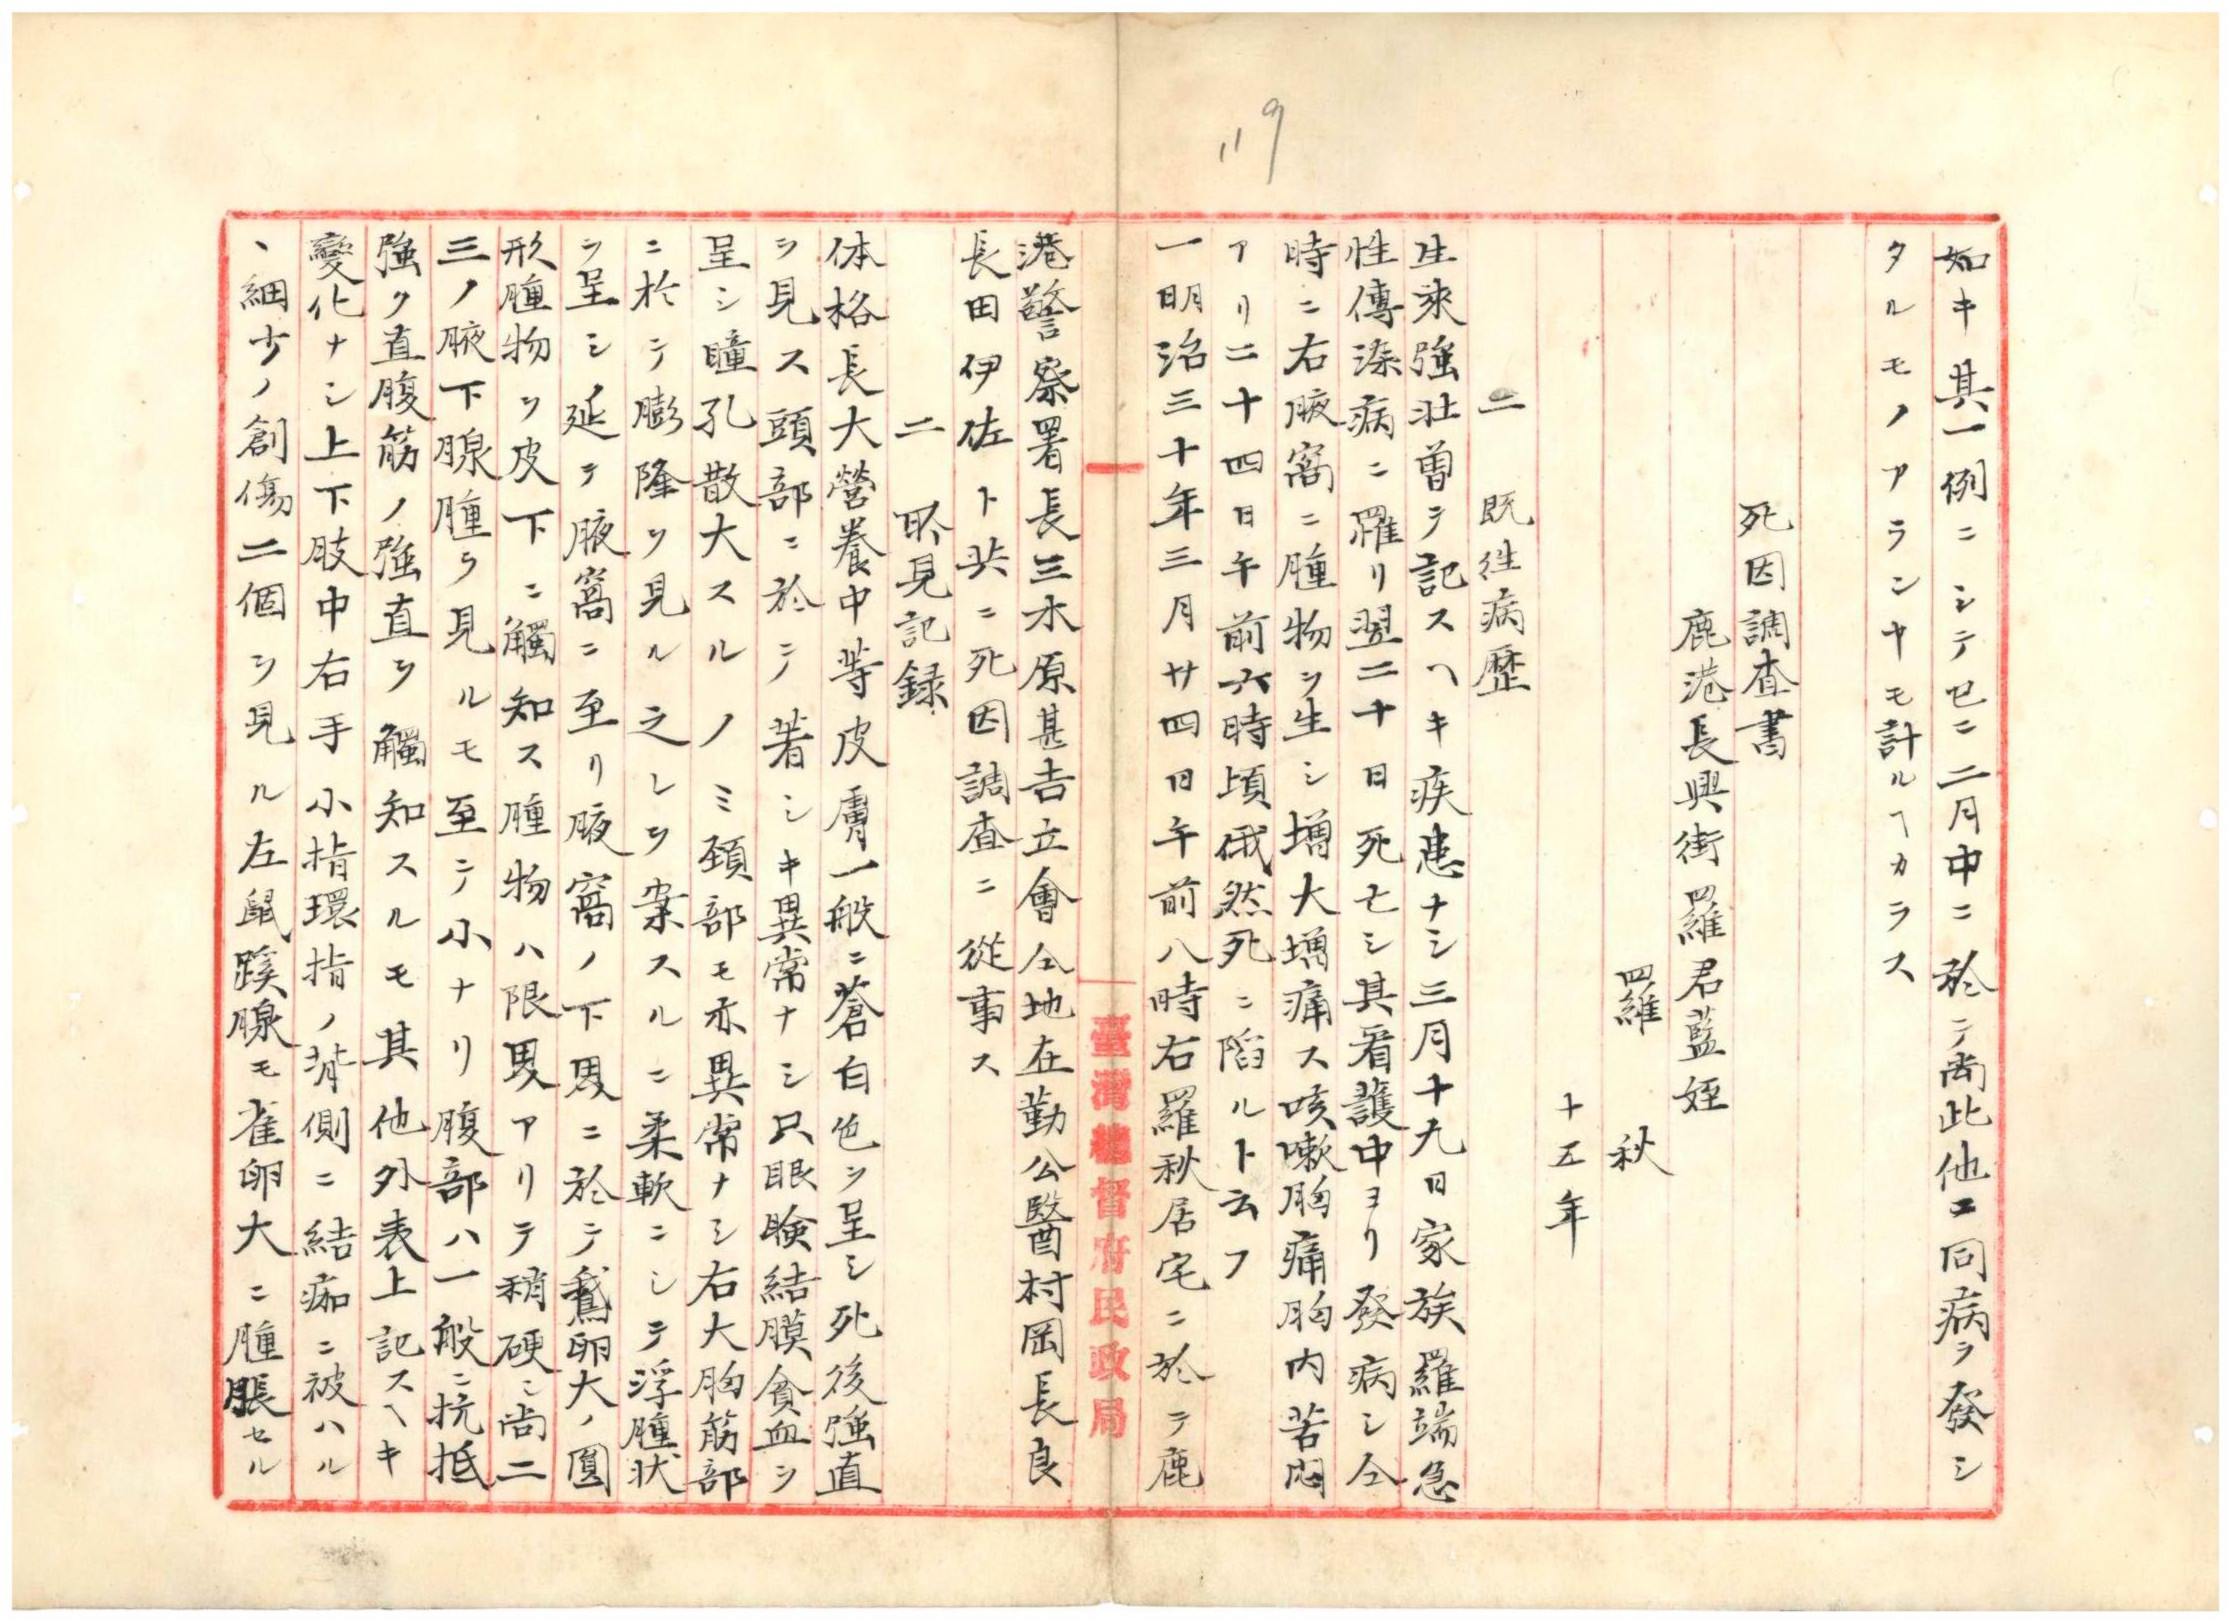 119
如キ其一例ニシテ已ニ二月中ニ於テ尚此他ニ同病ヲ發シ
タルモノアランヤモ計ルヘカラス
死因調査書
鹿港長興街羅君藍姪
羅秋
十五年
一 既往病歴
生來強壯曽テ記スヘキ疾患ナシ三月十九日家族羅端急
性傳染病ニ羅リ翌二十日死亡シ其看護中ヨリ發病シ仝
時ニ右腋窩ニ腫物ヲ生シ増大増痛ス咳嗽胸痛胸内苦悶
アリ二十四日午前六時頃俄然死ニ陷ルト云フ
一明治三十年三月廿四日午前八時右羅秋居宅ニ於テ鹿
臺灣總督府民政局
港警察署長三木原甚吉立會仝地在勤公醫村岡長良
長田伊佐ト共ニ死因調査ニ從事ス
二 所見記録
体格長大營養中等皮膚一般ニ蒼白色ヲ呈シ死後強直
ヲ見ス頭部ニ於テ著シキ異常ナシ只眼瞼結膜貧血ヲ
呈シ瞳孔散大スルノミ頚部モ亦異常ナシ右大胸筋部
ニ於テ膨隆ヲ見ル之レヲ案スルニ柔軟ニシテ浮腫状
ヲ呈シ延テ腋窩ニ至リ腋窩ノ下界ニ於テ鵞卵大ノ圓
形腫物ヲ皮下ニ觸知ス腫物ハ限界アリテ稍硬シ尚二
三ノ腋下腺腫ヲ見ルモ至テ小ナリ腹部ハ一般ニ抗抵
強ク直腹筋ノ強直ヲ觸知スルモ其他外表上記スヘキ
變化ナシ上下肢中右手小指環指ノ背側ニ結痂ニ被ハル
、細少ノ創傷二個ヲ見ル左鼠蹊腺モ雀卵大ニ腫脹セル